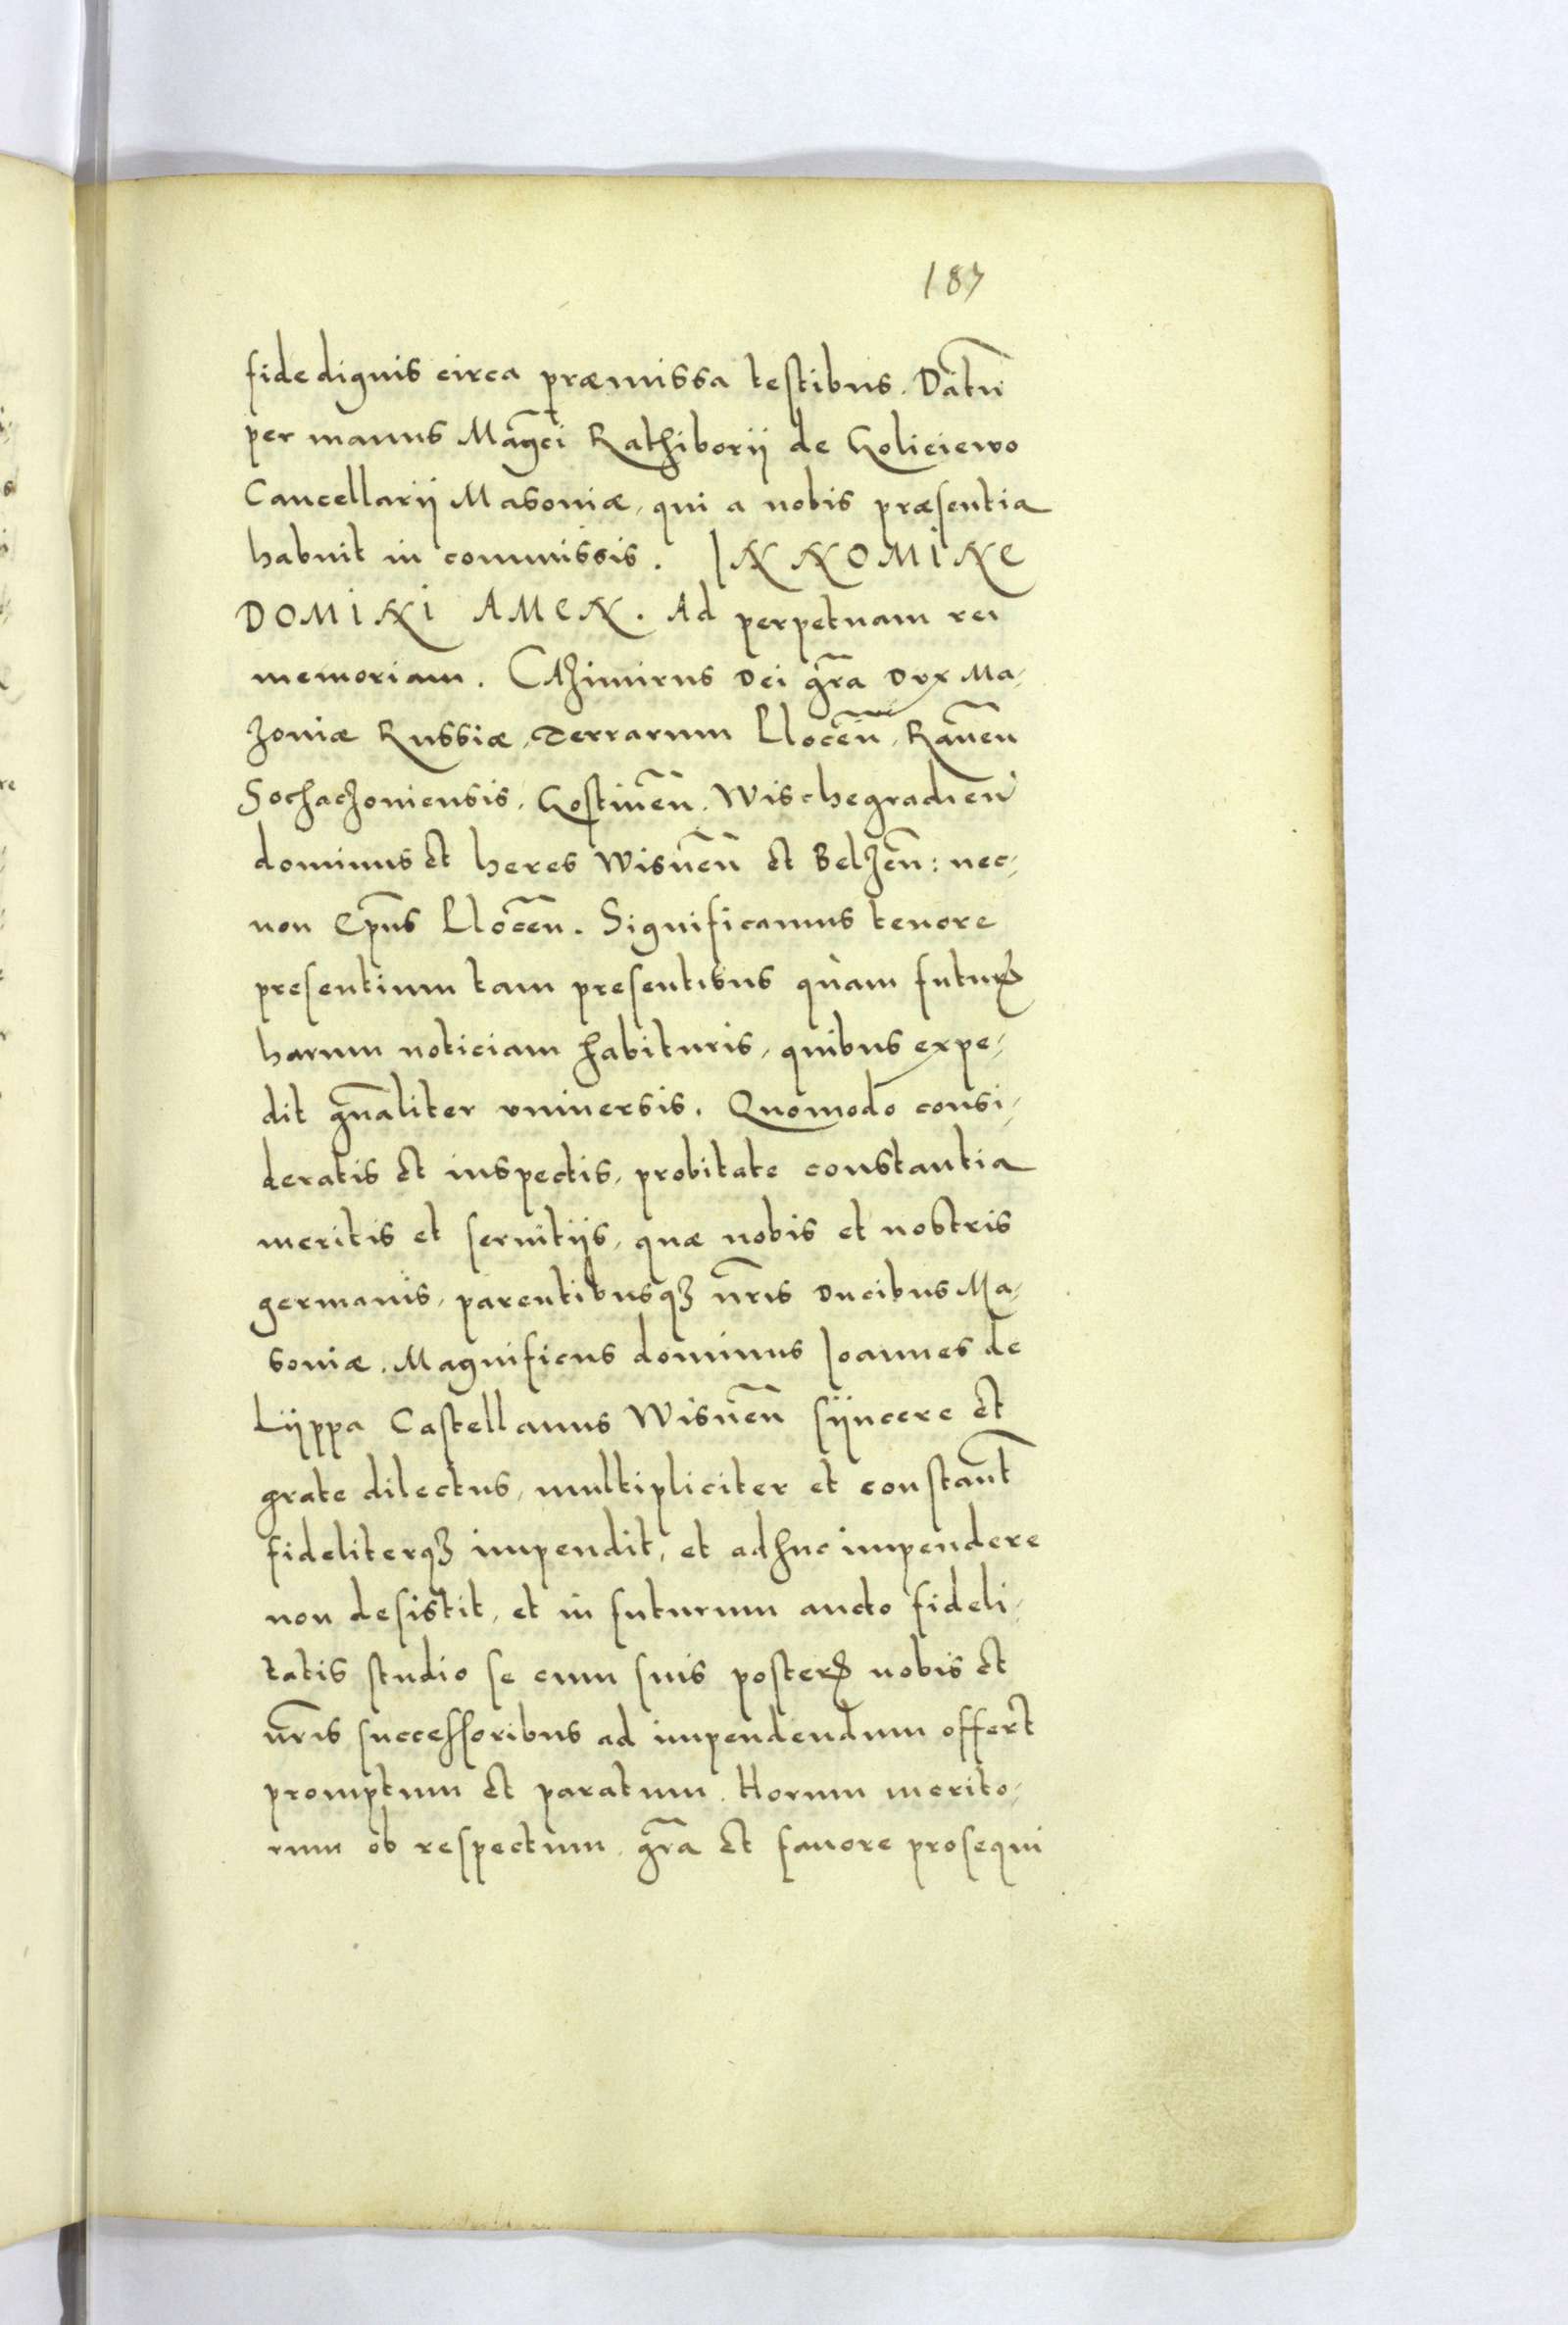 187
fide dignis circa præmissa testibus. Datū
per manus Mag̃ci Rathiborii de Goliciewo
Cancellarii Masoviæ, qui a nobis præsentia
habuit in commissis. IN NOMINE
DOMINI AMEN. Ad perpetuam rei
memoriam. CAzimirus Dei gr̃a Dvx Ma,
zoviæ Russiæ, Terrarum Plocen̄, Raven̄
Sochaczoviensis, Gostinen̄. Wischegradien̄
dominus et heres Wisnen̄ et Belzen̄: nec,
non Ep̃us Plocen̄. Significamus tenore
presentium tam presentibus quàm futurꝭ
harum noticiam habituris, quibus expe,
dit gñaliter vniuersis. Quomodo consi,
deratis et inspectis, probitate constantia
meritis et seruitijs, quæ nobis et nostris
germanis, parentibusqꝫ nr̃is Ducibus Ma,
soviæ. Magnificus dominus Ioannes de
Lÿppa Castellanus Wisnen̄ sÿncere et
grate dilectus, multipliciter et constanṫ
fideliterqꝫ impendit, et adhuc impendere
non desistit, et in futurum aucto fideli,
tatis studio se cum suis posterꝭ nobis et
nr̃is successoribus ad impendendum offert
promptum et paratum. Horum merito,
rum ob respectum, gr̃a et fauore prosequi